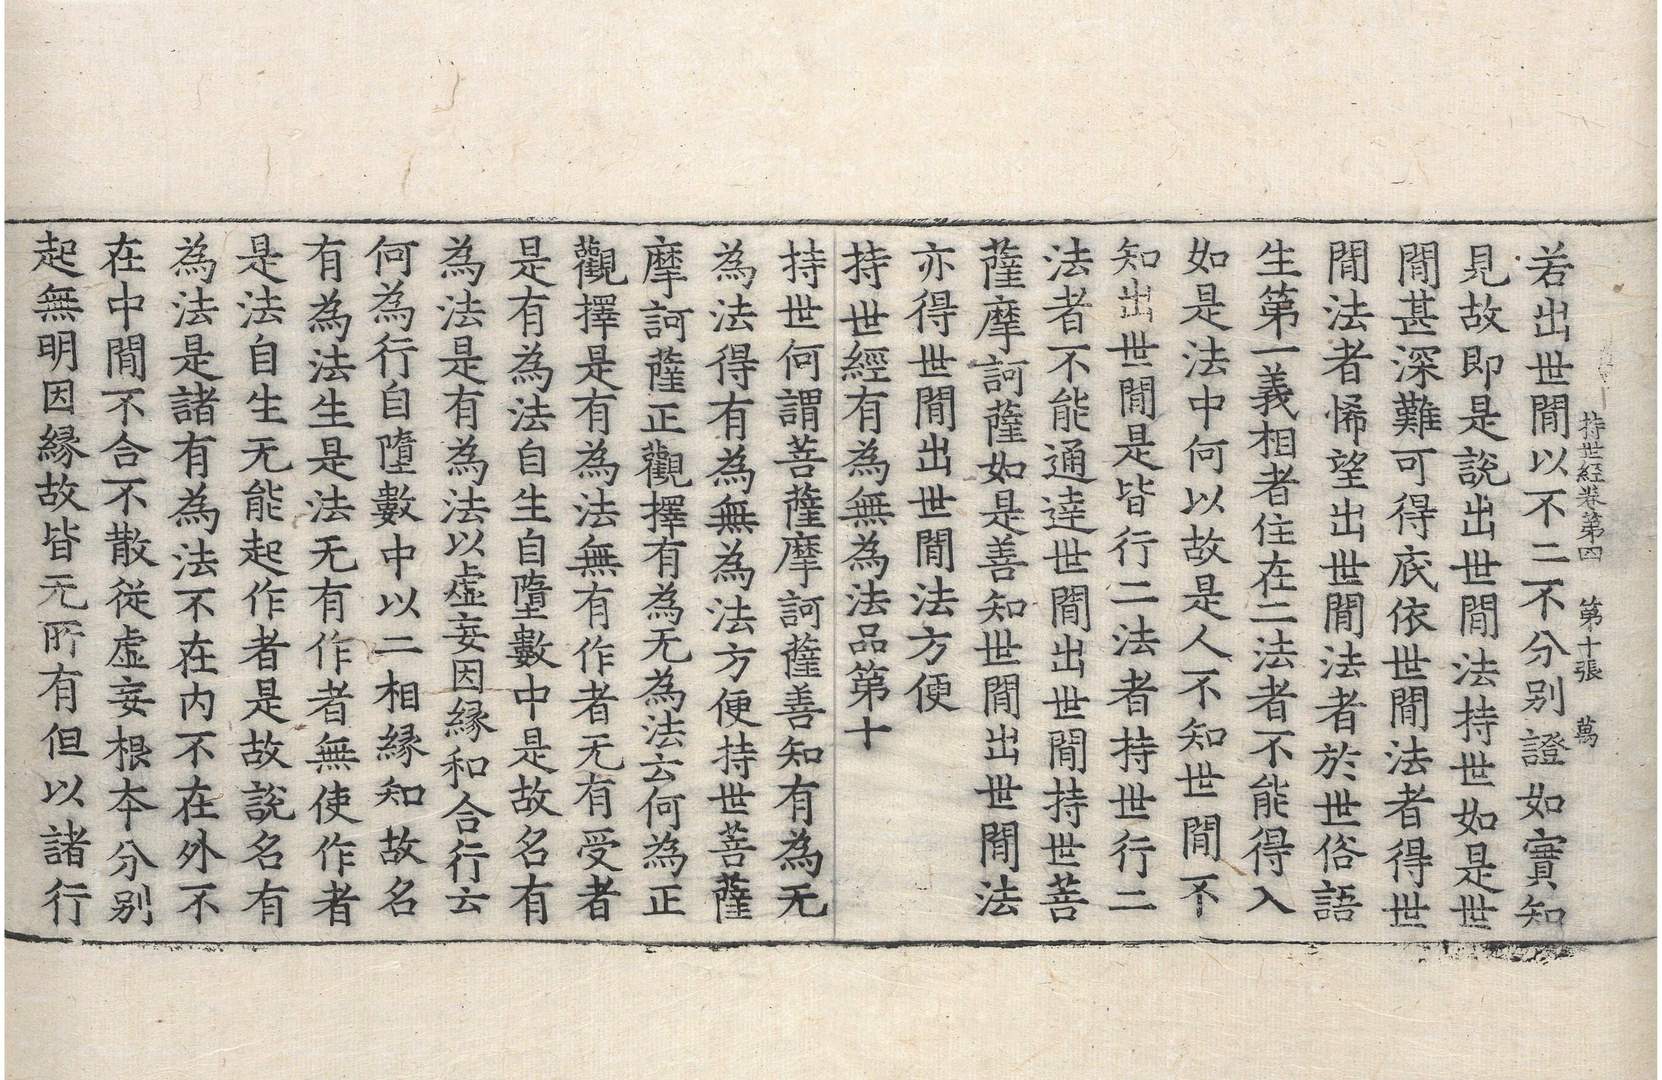 持世經卷第四　第十張　萬
若出世閒以不二不分別證如實知
見故即是說出世閒法持世如是世
閒甚深難可得底依世閒法者得世
閒法者悕望出世閒法者於世俗語
生第一義相者住在二法者不能得入
如是法中何以故是人不知世閒不
知出世閒是皆行二法者持世行二
法者不能通達世閒出世閒持世菩
薩摩訶薩如是善知世閒出世閒法
亦得世閒出世閒法方便
持世經有為無為法品第十
持世何謂菩薩摩訶薩善知有為无
為法得有為無為法方便持世菩薩
摩訶薩正觀擇有為无為法云何為正
觀擇是有為法無有作者无有受者
是有為法自生自墮數中是故名有
為法是有為法以虛妄因緣和合行云
何為行自墮數中以二相緣知故名
有為法生是法无有作者無使作者
是法自生无能起作者是故說名有
為法是諸有為法不在内不在外不
在中閒不合不散從虛妄根本分別
起無明因緣故皆无所有但以諸行